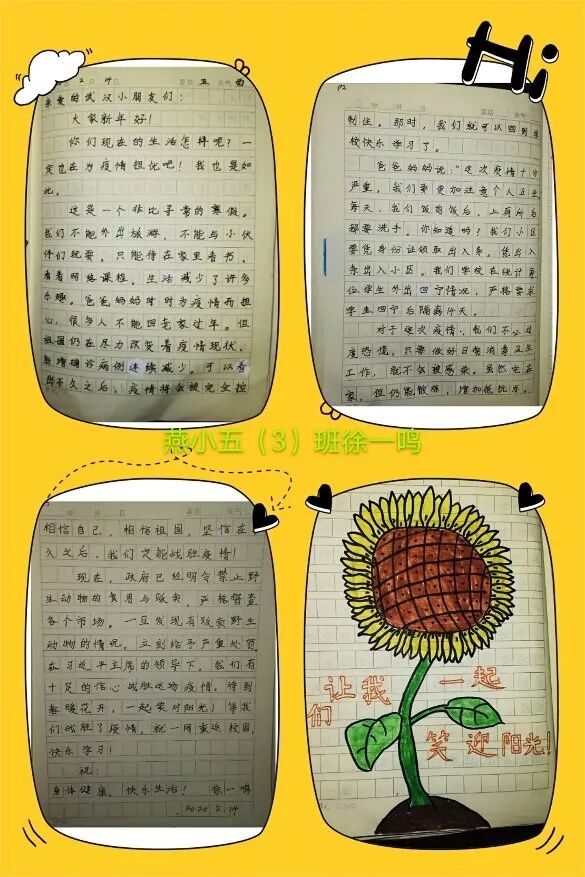 Hi
2月14日 星期五 天气
亲爱的武汉小朋友们：
大家新年好！
你们现在的生活怎样呢？一
定也在为疫情担忧吧！我也是如
此。
这是一个非比寻常的寒假。
我们不能外出旅游，不能与小伙
伴们玩耍，只能待在家里看书，
看看网络课程。生活减少了许多
乐趣。爸爸妈妈时时为疫情而担
心，很多人不能回老家过年。但
祖国仍在尽力改变着疫情现状，
新增确诊病例连续减少。可以看
出不久之后，疫情将会被完全控
P2
年 月 日 星期 天气
制住。那时，我们就可以回到学
校快乐学习了。
爸爸妈妈说：“这次疫情十分
严重，我们要更加注意个人卫生
每天，我们饭前饭后，上厕所后
都要洗手。你知道吗？我们小区
要凭身份证领取出入条，凭出入
条出入小区。我们学校在统计每
位学生外出回宁情况，严格要求
学生回宁后隔离 天。
对于这次疫情，我们不必过
度恐慌，只要做好日常消毒卫生
工作，就不会被感染。虽然宅在
家，但仍能锻炼，增加抵抗力，
燕小五（3）班徐一鸣
年 月 日 星期 天气
相信自己，相信祖国，坚信在
久之后，我们定能战胜疫情！
现在，政府已经明令禁止野
生动物的食用与贩卖，严格督查
各个市场。一旦发现有贩卖野生
动物的情况，立刻给予严重处罚
在习近平主席的领导下，我们有
十足的信心战胜这场疫情。待到
春暖花开，一起笑对阳光！等我
们战胜了疫情，就一同重返校园，
快乐学习！
祝：
身体健康，快乐生活！ 徐一鸣
2020.2.14
让我们一起
笑迎阳光！